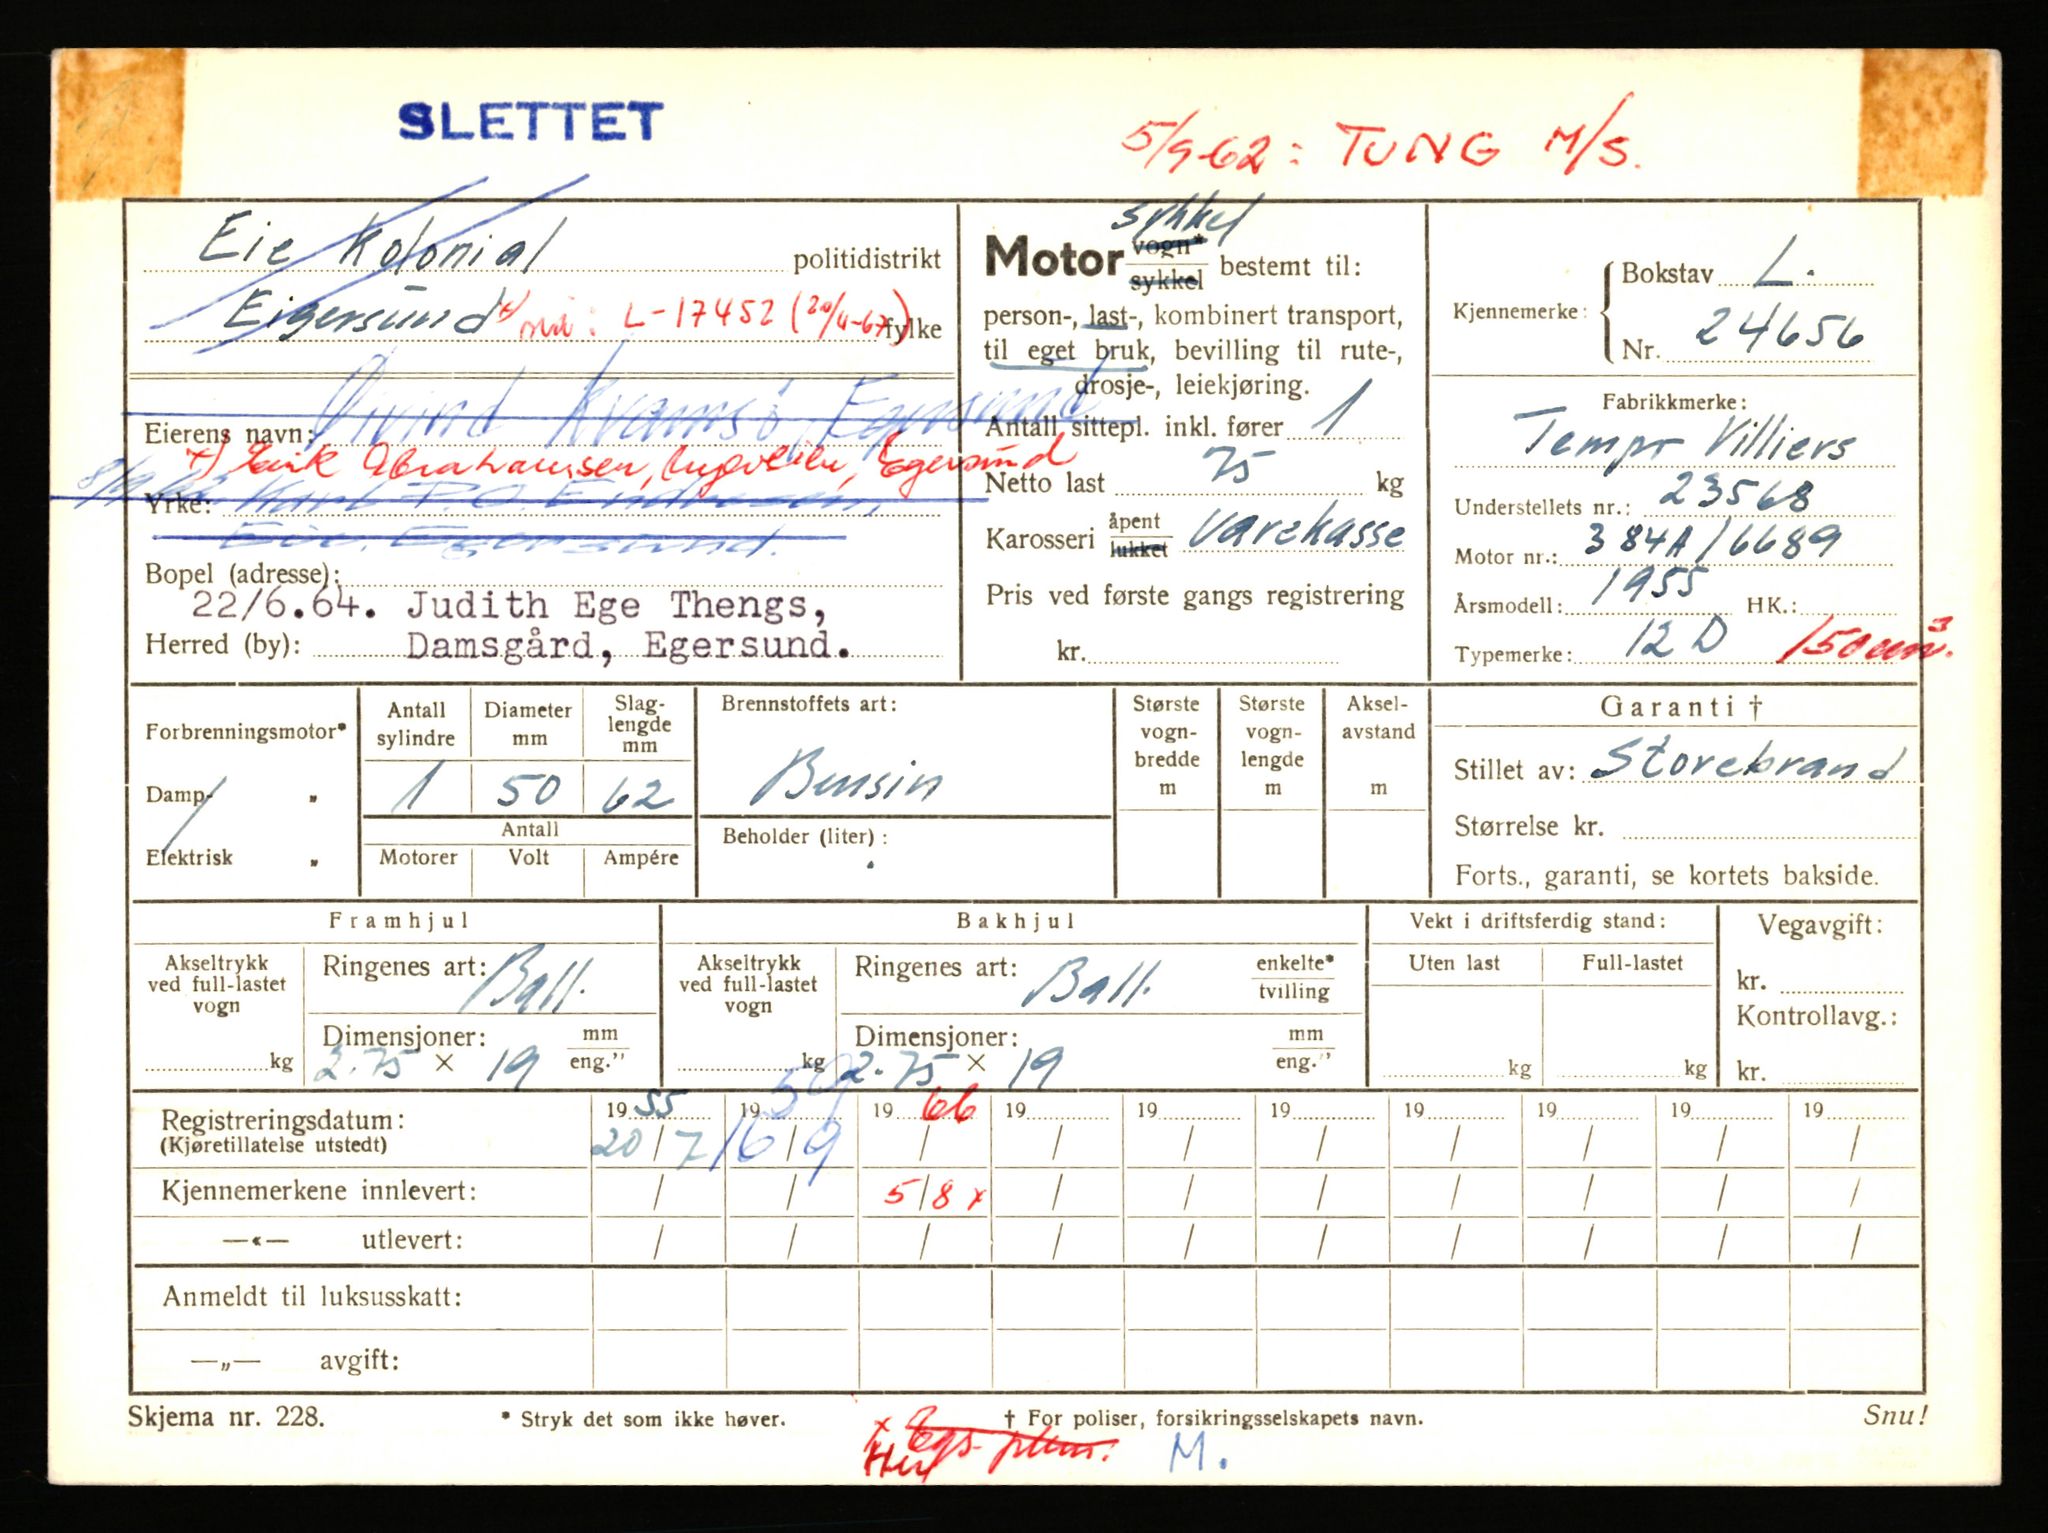 SLETTET
5/9-62: TUNG M/S.
Eie Kolonial politidistrikt
Eigersund x) nå: L-17452 (20/4-67) fylke
Øivind Kvamsø, Egersund
Eierens navn:
x) Eirik Abrahamsen, Egersund
Yrke: Karl P.O.
Eie, Egersund.
Bopel (adresse):
22/6.64. Judith Ege Thengs,
Herred (by): Damsgård, Egersund.
sykkel
Motor vogn* sykkel bestemt til:
person-, last-, kombinert transport,
til eget bruk, bevilling til rute-,
drosje-, leiekjøring.
Antall sittepl. inkl. fører 1
Netto last 75 kg
Karosseri åpent lukket varekasse
Pris ved første gangs registrering
kr.
Kjennemerke: Bokstav L.
Nr. 24656
Fabrikkmerke:
Tempo Villiers
Understellets nr.: 23568
Motor nr.: 384A/6689
Årsmodell: 1955 HK.:
Typemerke: 12 D 150 cm³.
Forbrenningsmotor*
Damp- „
Elektrisk „
Antall sylindre Diameter mm Slaglengde mm
1 50 62
Antall
Motorer Volt Ampére
Brennstoffets art:
Bensin
Beholder (liter):
Største vogn-bredde m Største vogn-lengde m Aksel-avstand m
Garanti †
Stillet av: Storebrand
Størrelse kr.
Forts., garanti, se kortets bakside.
Framhjul Bakhjul Vekt i driftsferdig stand: Vegavgift:
Akseltrykk ved full-lastet vogn kg
Ringenes art: Ball.
Dimensjoner: mm eng."
2.75 × 19
Akseltrykk ved full-lastet vogn kg
Ringenes art: Ball. enkelte* tvilling
Dimensjoner: mm eng."
2.75 × 19
Uten last Full-lastet
kg kg
kr.
Kontrollavg.:
kr.
Registreringsdatum: 19 55 19 59 19 66 19 19 19 19 19 19 19
(Kjøretillatelse utstedt) 20/7 16/9 / / / / / / / /
Kjennemerkene innlevert: / / 5/8 x / / / / / / /
—«— utlevert: / / / / / / / / / /
Anmeldt til luksusskatt:
—„— avgift:
Skjema nr. 228. * Stryk det som ikke høver. † For poliser, forsikringsselskapets navn. Snu!
x Egs. M.